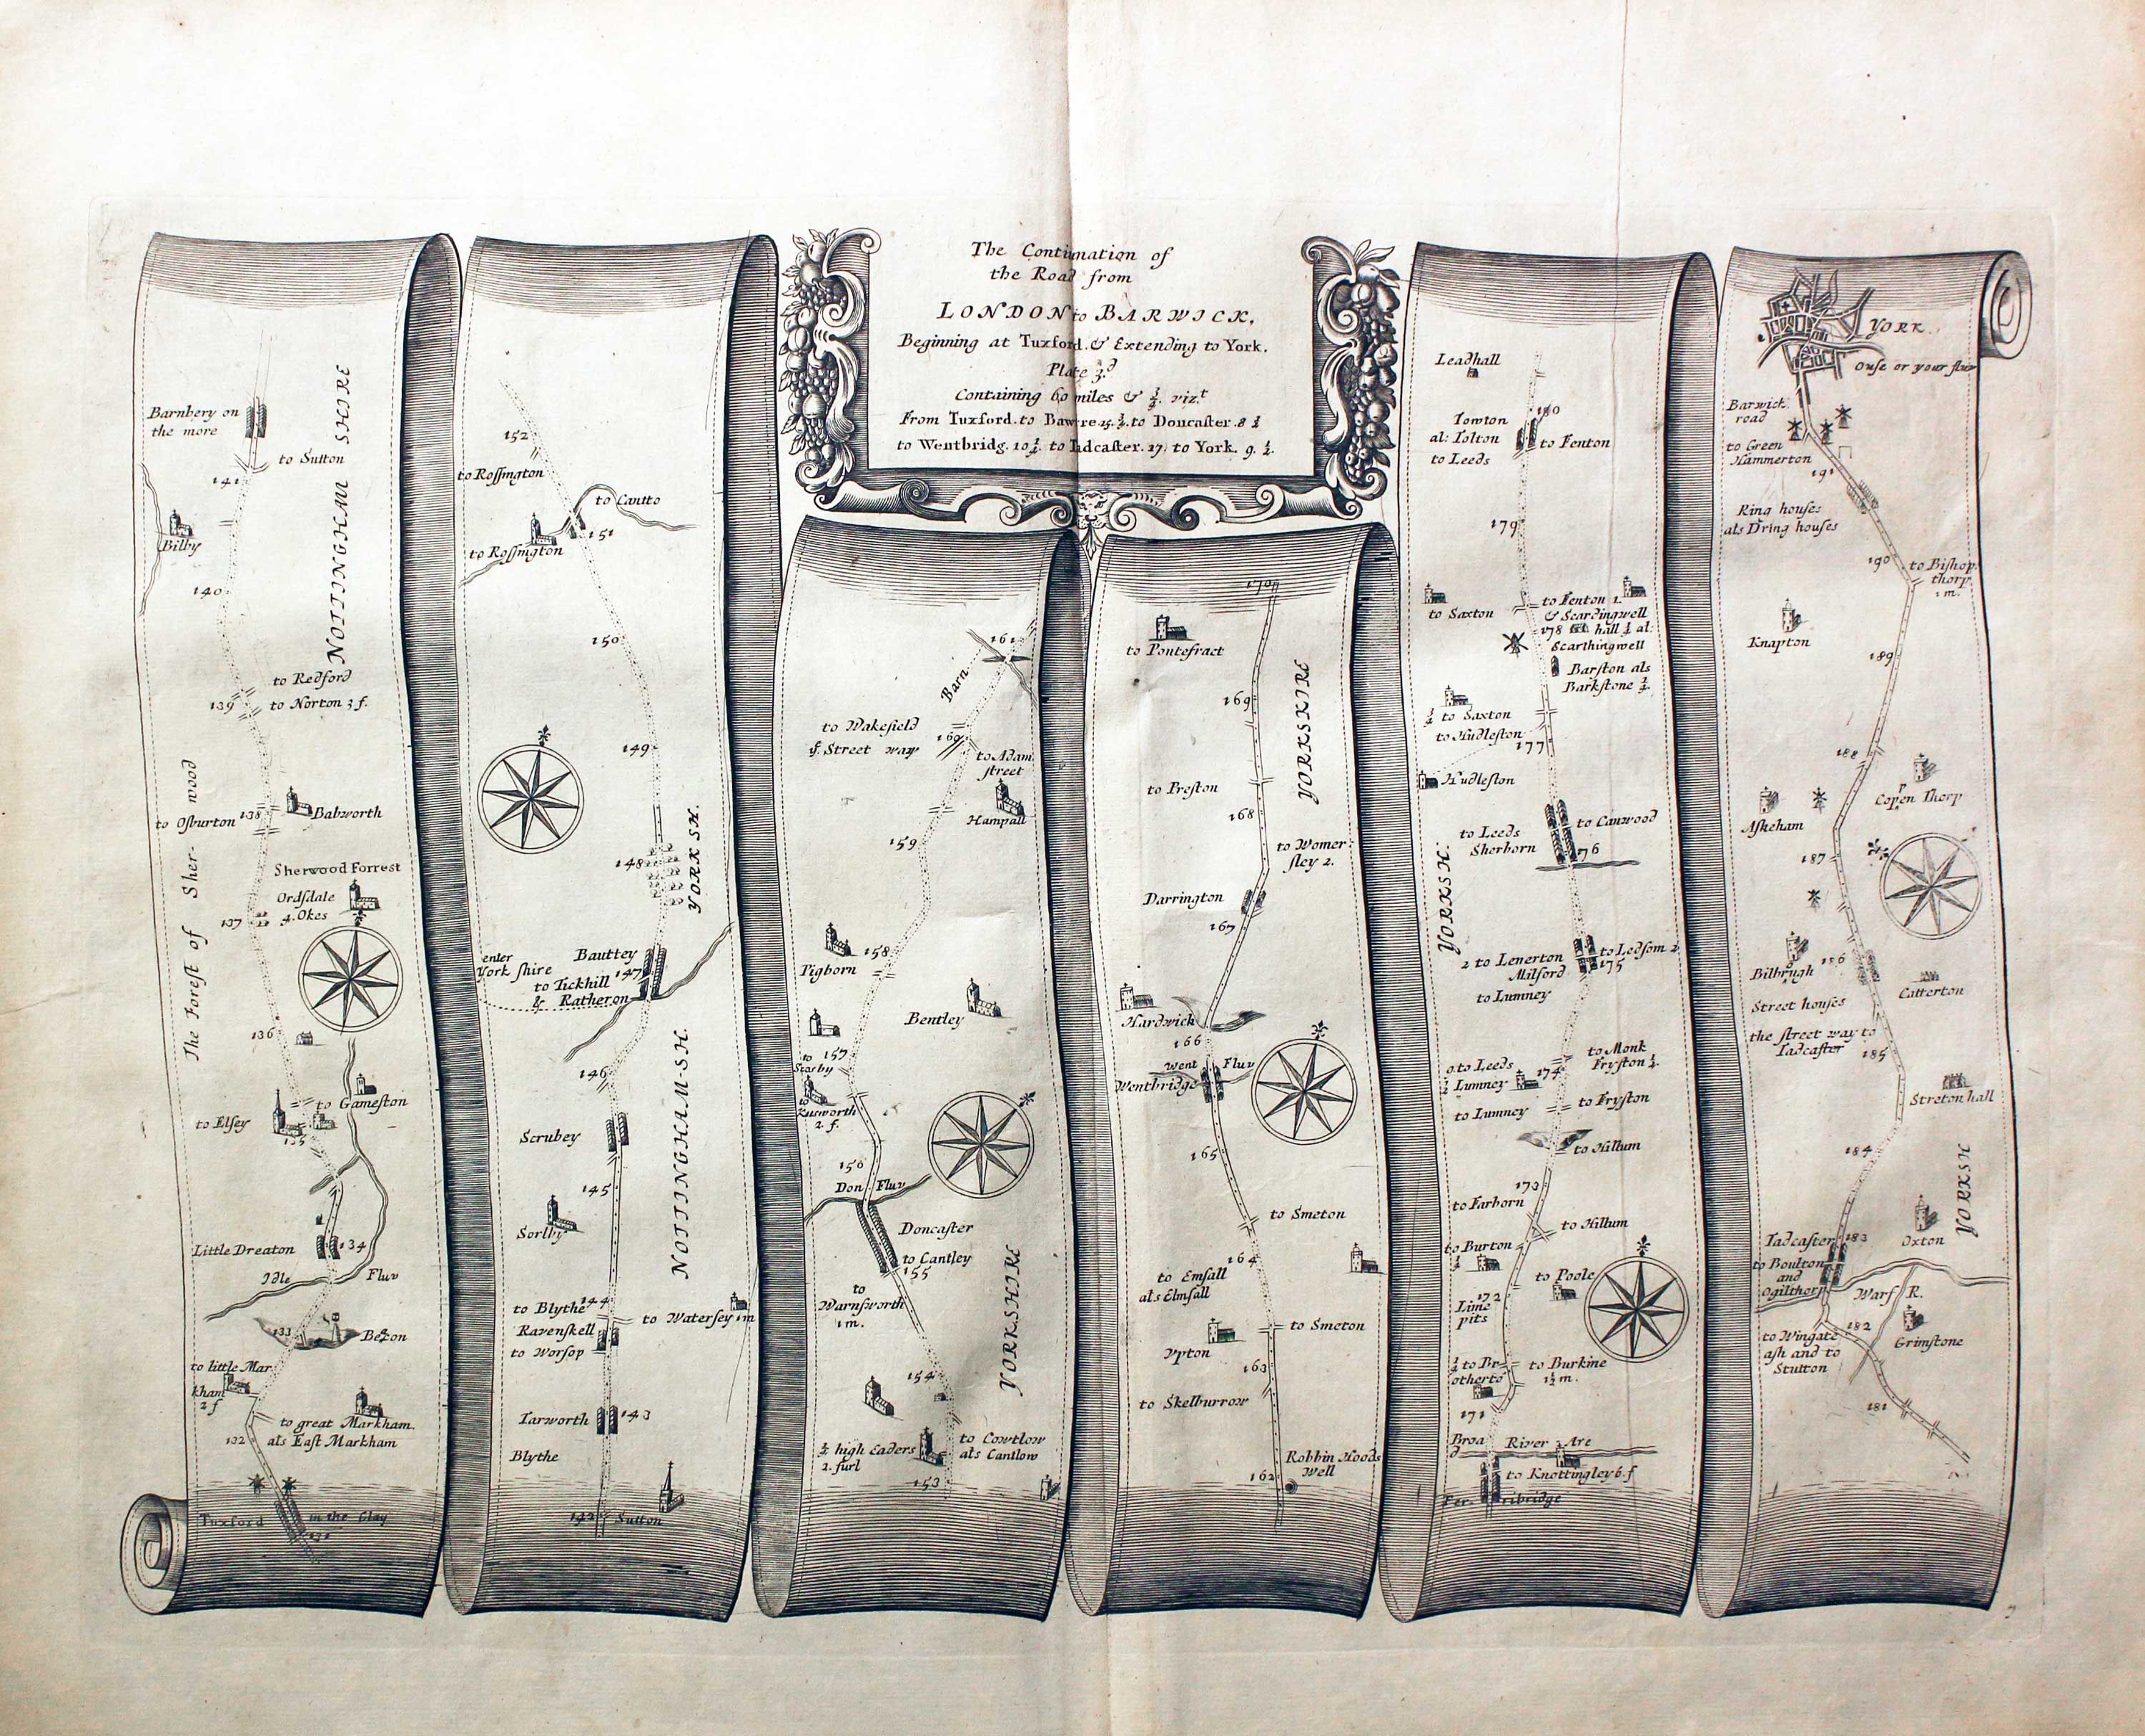 The Continuation of
the Road from
LONDON to BARWICK,
Beginning at Tuxford & Extending to York.
Plate 3.d
Containing 60 miles & vizt
From Tuxford to Bawtre 15. to Doncaster 8
to Wentbridg. 10 to Tadcaster. 17, to York. 9. ½.
Barnbery on
the more
to Sutton
141
NOTTINGHAM SHIRE
Bilby
140
to Redford
139
to Norton 3 f.
The Forest of Sher- wood
to Osburton 138
Babworth
Sherwood Forrest
Ordsdale
4. Okes
137
136
to Gameston
to Elsey
135
Little Dreaton
134
Idle
Fluv
133
to little Mar
kham
2 f
to great Markham.
als East Markham
132
Tuxford in the Clay
131
152
to Rossington
to Cantto
151
to Rossington
150
149
148
YORKSH.
enter
York shire
Bauttey
147
to Tickhill
& Ratheron
146
NOTTINGHAMSH.
Scrubey
145
Sorlby
to Blythe 144
to Watersey 1m
Ravenskell
to Worsop
Tarworth
143
Blythe
142
Sutton
161
Barn
to Wakefield
ye. Street way
160
to Adam
street
Hampall
159
158
Pigborn
Bentley
157
to
Kusworth
2. f.
156
Don Fluv
Doncaster
to Cantley
155
to
Warnsworth
1 m.
YORKSHIRE
154
½ high Eaders
2. furl
to Cowtlow
als Cantlow
153
170
to Pontefract
169
YORKSHIRE
to Preston
168
to Womer
sley 2.
Darrington
167
Hardwick
166
Went Fluv
Wentbridge
165
to Smeton
164
to Emsall
als Elmsall
to Smeton
Upton
163
to Skelburrow
Robbin Hoods
Well
162
Leadhall
180
Towton
al: Tolton
to Fenton
to Leeds
179
to Saxton
to Fenton 1.
& Scardingwell
178 hall ½ al:
Scarthingwell
Barston als
Barkstone ½.
to Saxton
to Hudleston
177
Hudleston
to Leeds
to Cawood
Sherborn
176
YORKSH.
2 to Lenerton
to Ledsom 2
Milford
175
to Lumney
to Leeds
½ Lumney
174
to Monk
Fryston ½.
to Lumney
to Fryston
to Hillum
173
to Farborn
to Hillum
to Burton
to Poole
172
Lime
pits
½ to Br
otherto
to Burkine
1½ m.
171
Broa
d
River Are
to Knottingley 6. f
Fer. ribridge
YORK.
Ouse or your fluv
Barwick
road
to Green
Hammerton
191
Ring houses
als Dring houses
190
to Bishop
thorp
1 m.
Knapton
189
188
Copen Thorp
Askeham
187
Bilbrugh
186
Catterton
Street houses
the street way to
Tadcaster
185
Streton hall
184
YORKSH
Tadcaster
183
Oxton
to Boulton
and
Ogilthorp
Warf R.
182
Grimstone
to Wingate
ash and to
Stutton
181